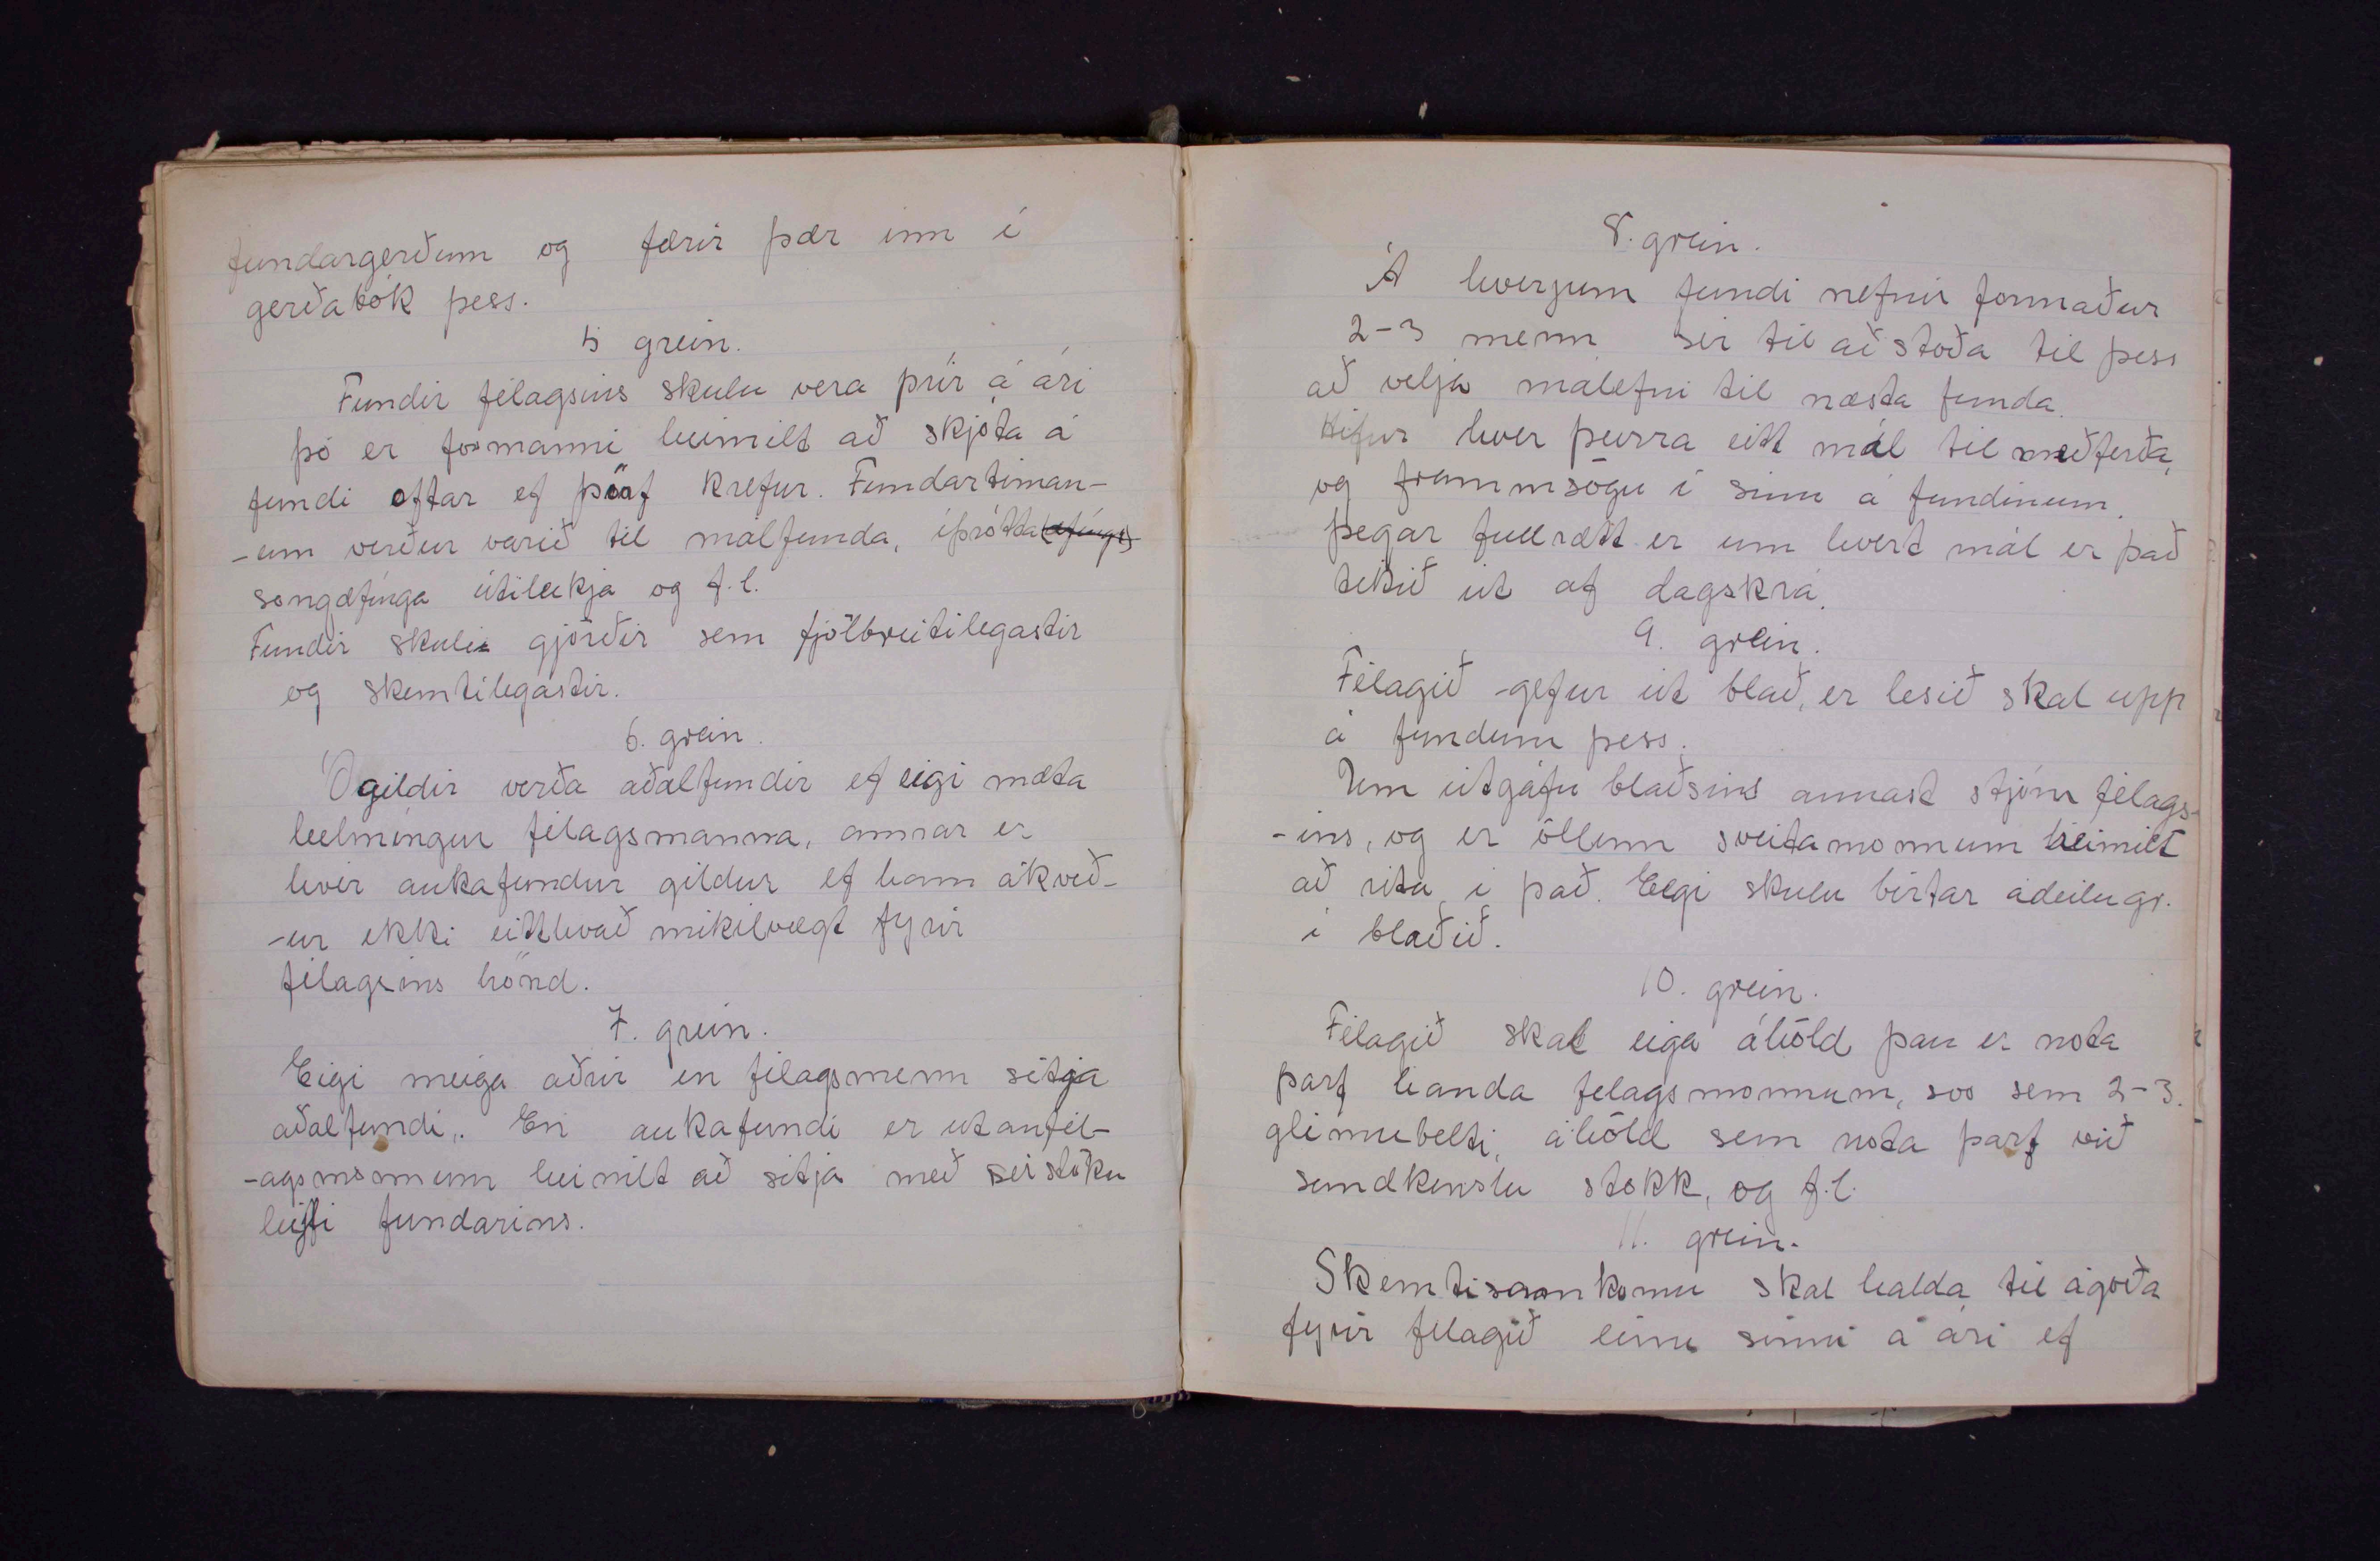 fundargerðum og færir þær inn í
gerðabók þess.
5 grein.
Fundir félagsins skulu vera þrír á ári
þó er formanni heimilt að skjóta á
fundi oftar ef þörf krefur. Fundartíman-
-um verður varið til málfunda, íþrótta(æfinga)
songæfinga útileikja og f.l.
Fundir skulu gjörðir sem fjölbreitilegastir
og skemtilegastir.
6. grein.
Ógildir verða aðalfundir ef eigi mæta
helmingur félagsmanna, annar er
hver aukafundur gildur ef hann ákveð-
-ur ekki eitthvað mikilvægt fyrir
félagsins hönd.
7. grein.
Eigi meiga aðrir en félagsmenn sitja
aðalfundi. En aukafundi er utanfél-
-agsmonnum heimilt að sitja með serstöku
leifi fundarins.
8. grein.
Á hverjum fundi nefnir formaður
2-3 menn sér til aðstoða til þess
að velja málefni til næsta funda.
Hefur hver þeirra eitt mál til meðferða,
og frammsögu í sinu á fundinum.
þegar fullrætt er um hvert mál er það
tekið út af dagskrá.
9. grein.
Félagið gefur út blað, er lesið skal upp
á fundum þess.
Um útgáfu blaðsins annast stjórn félags-
-ins, og er öllum sveitamonnum heimilt
að rita í það. Eigi skulu birtar ádeilugr.
í blaðið.
10. grein.
Félagið skal eiga áhöld þau er nota
þarf handa felagsmonnum, svo sem 2-3.
glímubelti, áhöld sem nota þarf við
sundkenslu stokk, og f.l.
11. grein.
Skemtisamkomu skal halda til ágoða
fyrir félagið einu sinni á ári ef